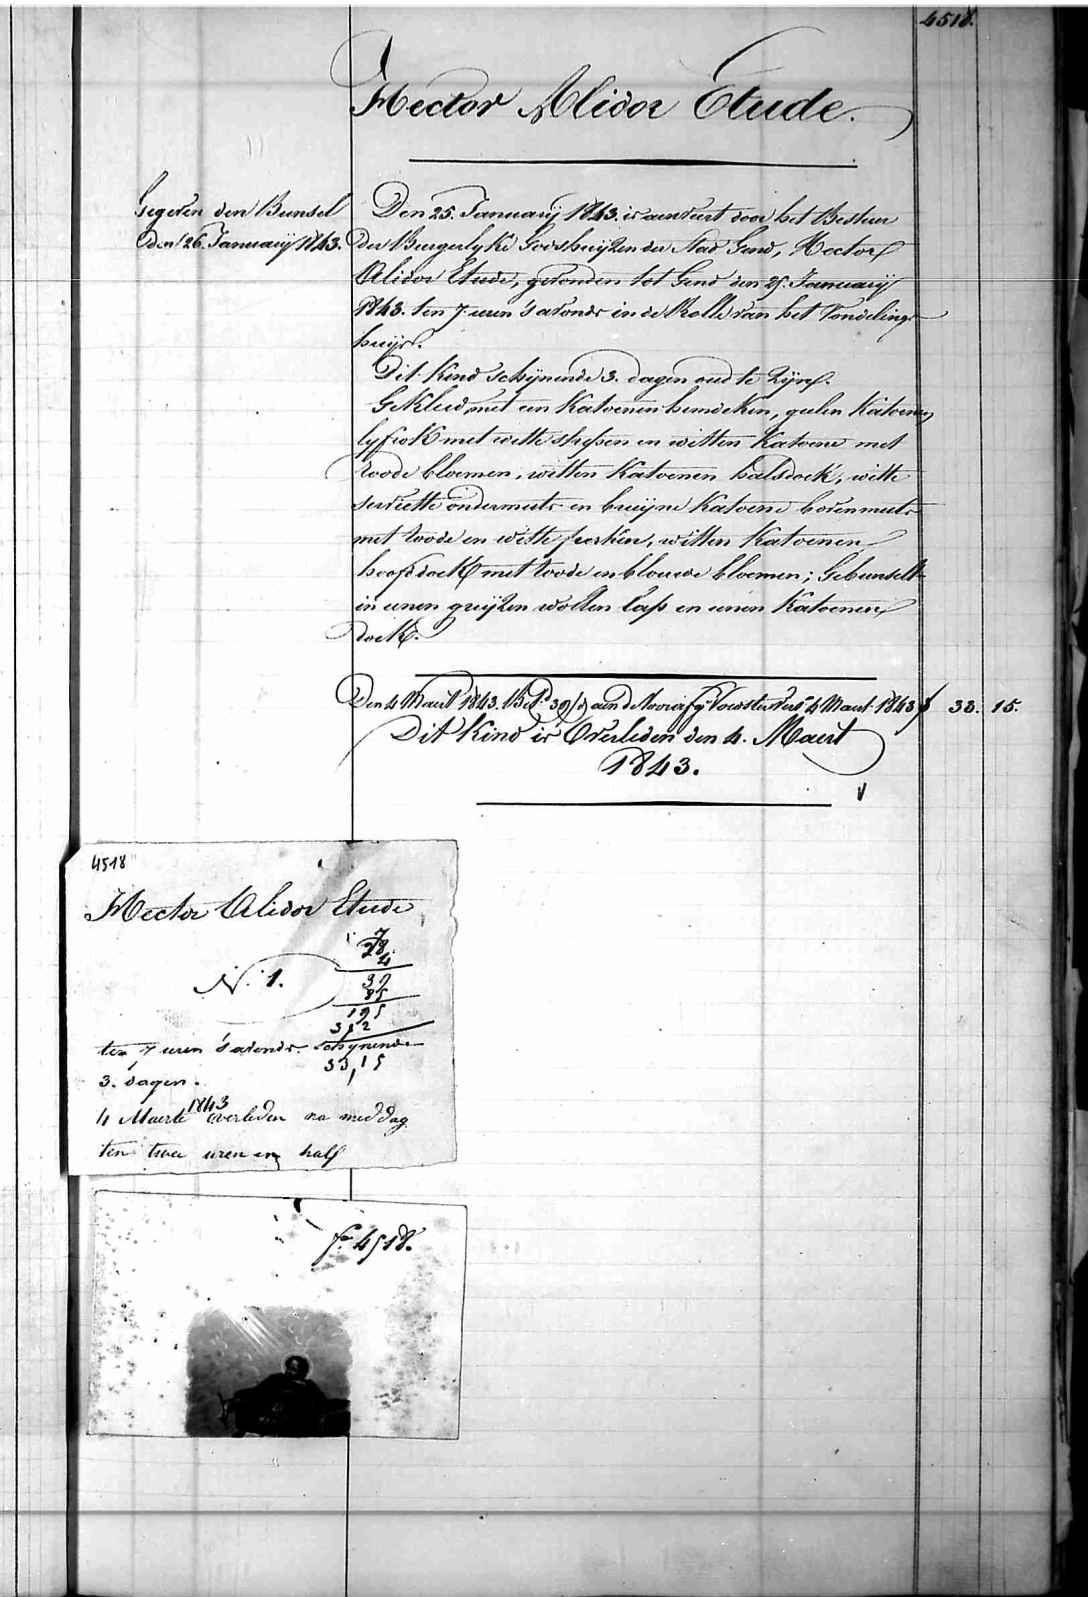 4518.
Hector Alidor Etude.
Gegeven den Bunsel
den 26. January 1843.
Den 25. January 1843. is aenveert door het Bestuer
der Burgerlyke Godshuyzen der Stad Gend, Hector
Alidor Etude, gevonden tot Gend den 25. January
1843. ten 7. uren 's avonds in de Rolle van het Vondeling-
huys.
Dit Kind schynende 3. dagen oud te Zyn.
Gekleed met een Katoenen hemdeken, geelen Katoenen
lyfrok met witte strepen en witten Katoene met
roode bloemen, witten Katoenen halsdoek, witte
serviette ondermuts en bruyne Katoene bovenmuts
met roode en witte perken, witten Katoenen
hoofdoek met roode en blauwe bloemen; Gebunselt
in eenen gryzen wollen lap en eenen Katoenen
doek.
Den 4 Maert 1843. Bet. 39/d aen de 4 Maert 1843 f 33. 15.
Dit Kind is Overleden den 4. Maert
1843.
4518
Hector Alidor Etude
7
28
4
N. 1.
39
85
195
3,12
ten 7 uren 's avonds. schynende
33,15
3. dagen.
4 Maerte 1843 overleden na meddag
ten twee uren en half
fo. 4518.